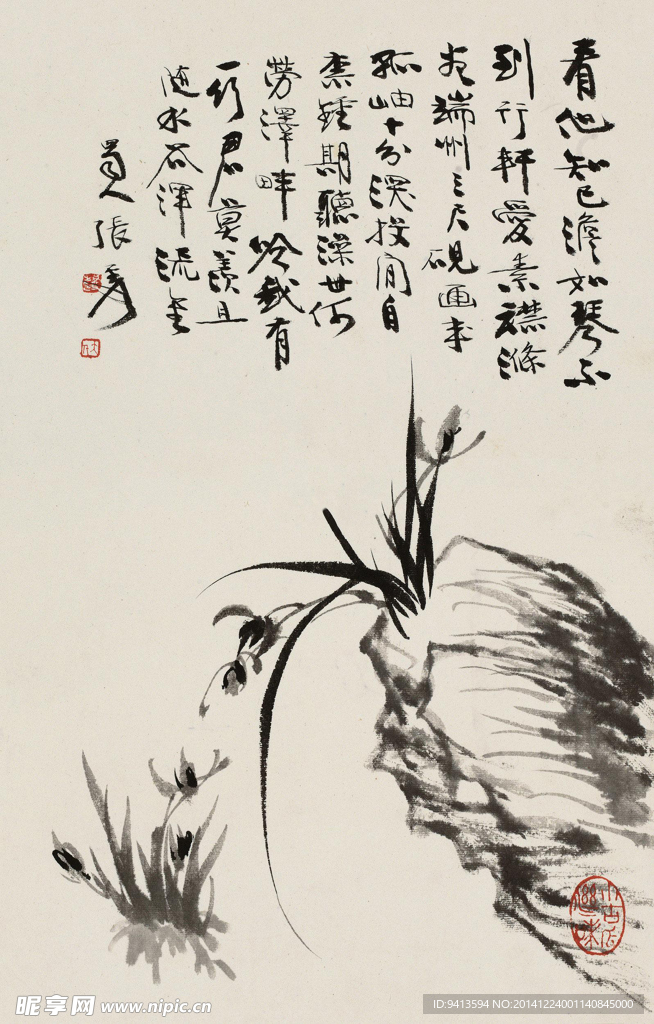 看他知己澹如琴不
到行軒愛素襟滌
尽端州三尺硯画成
孤岫十分深投閒自
柰鍾期聽澡世何
勞澤畔吟識有
一行君莫羨且
随水石渾流
員人張
昵享网 www.nipic.cn
ID:9413594 NO:20141224001140845000